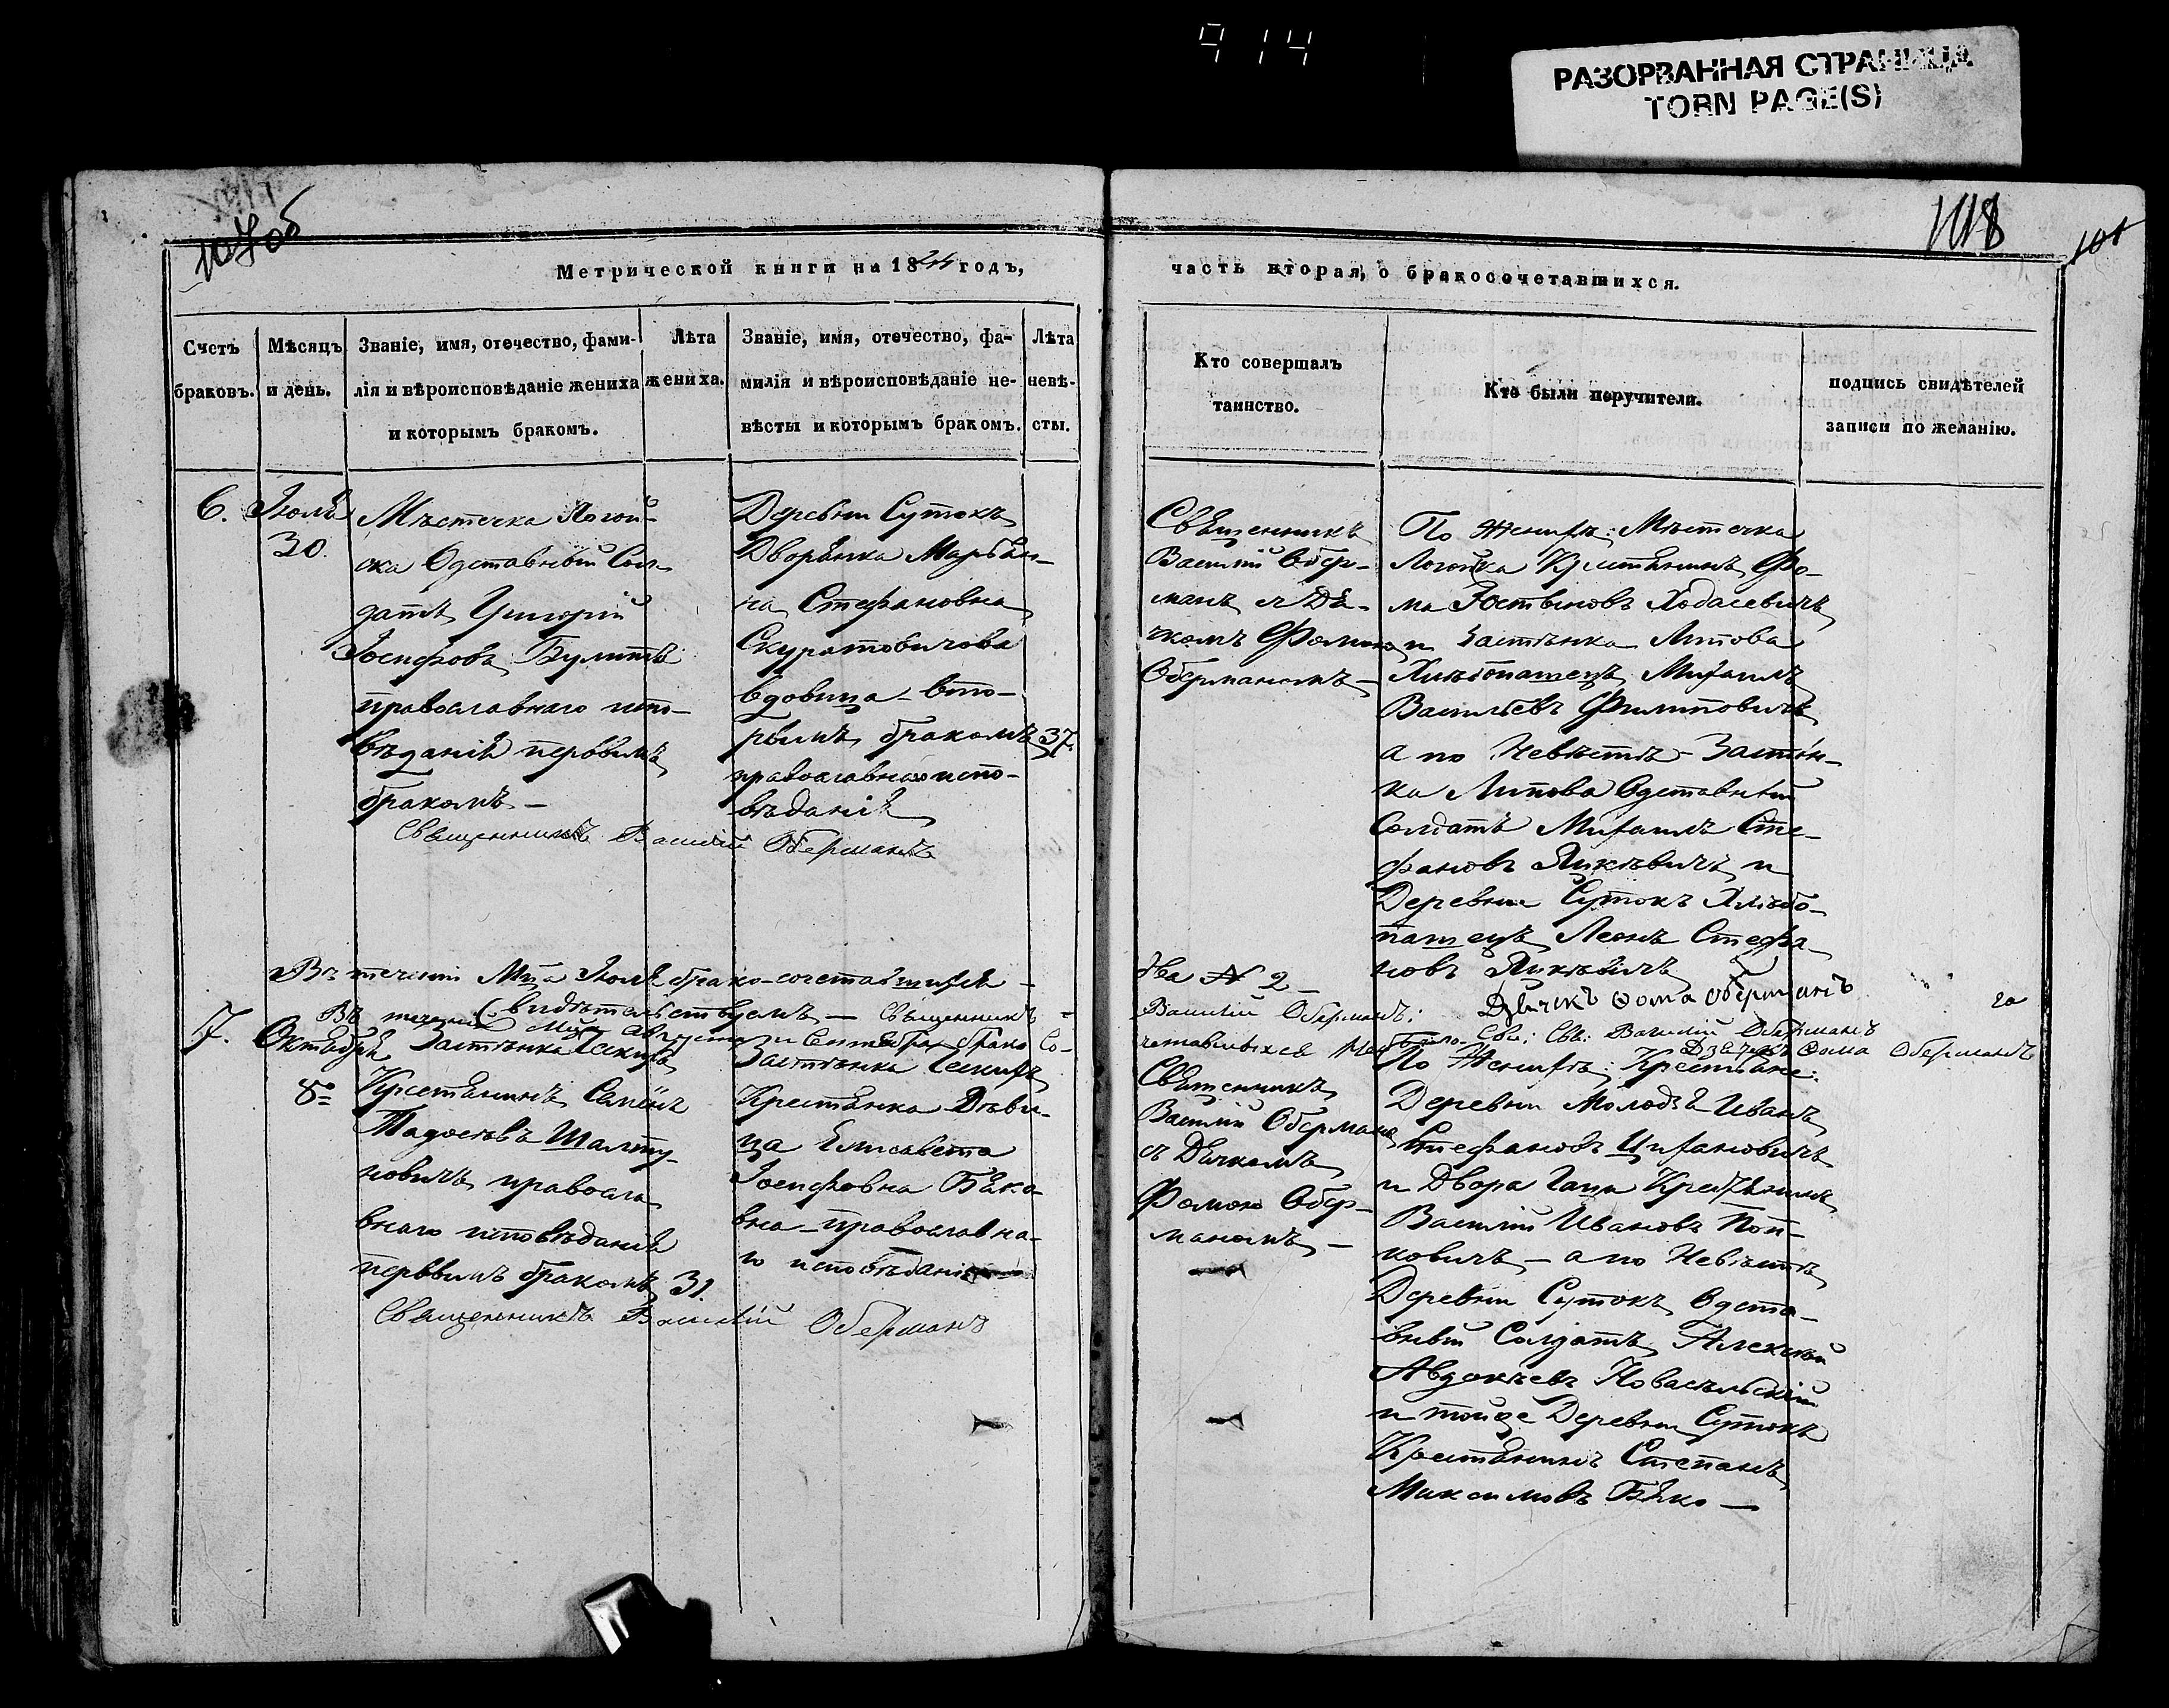 914
РАЗОРВАННАЯ СТРАНИЦА
TORN PAGE(S)
107об
118
Метрической книги на 18 годъ,
часть вторая, о бракосочетавшихся.
Счетъ
браковъ.
Мѣсяцъ
и день.
Званіе, имя, отечество, фами-
лія и вѣроисповѣданіе жениха
и которымъ бракомъ.
Лѣта
жениха.
Званіе, имя, отечество, фа-
милія и вѣроисповѣданіе не-
вѣсты и которымъ бракомъ.
Лѣта
невѣ-
сты.
Кто совершалъ
таинство.
Кто были поручители.
подпись свидѣтелей
записи по желанію.
6.
Іюля
30.
Мѣстечка Логой-
ска Одставный Сол-
датъ Григорій
Іосифовъ Булитъ
православнаго испо-
вѣданія первымъ
бракомъ —
Деревни Сутокъ
Дворянка Марьян-
на Стефановна
Скуратовичова
вдовица – вто-
рымъ бракомъ
православнаго испо-
вѣданія
37.
Священникъ Василій Оберманъ
Священникъ
Василій Обер-
манъ съ Дя-
чкомъ Фомою
Оберманомъ —
По Женихѣ: Мѣстечка
Логойска Крестянинъ Фо-
ма Устиновъ Ходасевичъ
и Застѣнка Литова
Хлѣбопашецъ Михаилъ
Васильевъ Филиповичъ
а по Невѣстѣ – Застѣн-
ка Литова Одставный
Солдатъ Михаилъ Сте-
фановъ Янкѣвичъ и
Деревни Сутокъ Хлѣбо-
пашецъ Леонъ Стефа-
новъ Янкѣвичъ
Въ теченіи Мца Іюля брако-сочетавшихся –
два № 2 –
Свидѣтельствуемъ — Священникъ
Василій Оберманъ: Дьячекъ Фома Оберманъ
Въ теченіи Мца Августа и Сентября брако Со-
четавшихся Не было. Сви: Свя: Василій Оберманъ
Дьячекъ Фома Оберманъ
7.
Октября
8=
Застѣнка
Крестянинъ Семёнъ
Тадеевъ Шалту-
новичъ православ-
внаго исповѣданія
первымъ бракомъ
31.
Застѣнка
Крестянка Дѣви-
ца Елисавета
Іосифовна Бяко-
вна – православна-
го исповѣданія
Священникъ Василій Оберманъ
Священникъ
Василій Оберманъ
съ Дячкомъ
Фомою Обер-
маномъ —
По Женихѣ: Крестяне:
Деревни Молодѣ Иванъ
Стефановъ Цихановичъ
и Двора Гаци Крестянинъ
Василій Ивановъ Поп-
ковичъ — а по Невѣстѣ
Деревни Сутокъ Одста-
вный Солдатъ Алексѣй
Авдокѣевъ Новасѣльскій
и тойже Деревни Сутокъ
Крестянинъ Степанъ
Максимовъ Бяко —